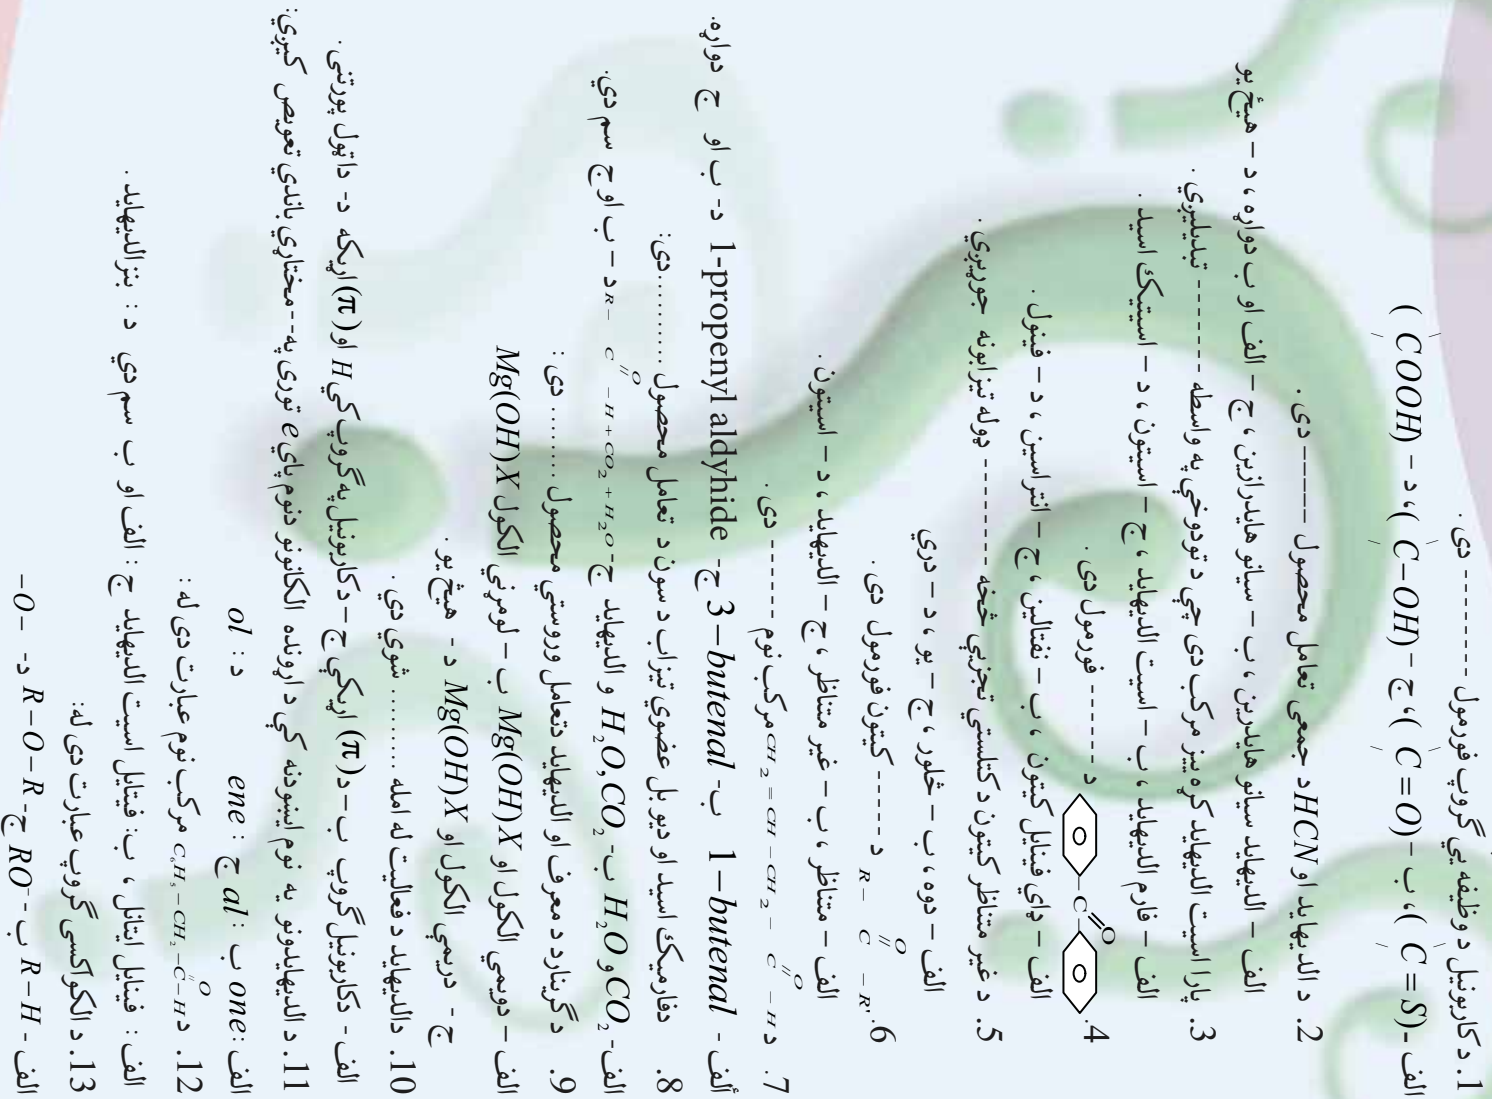 1. د کاربونیل د وظیفه یي گروپ فورمول -------- دی .
الف ـ (C = S) ، ب – (C = O) ، ج - (C – OH) ، د – (COOH)
2. د الدیهاید او HCN د جمعی تعامل محصول ------ دی .
الف – الدیهاید سیانو هایدرین ، ب – سیانو هایدرازین ، ج – الف او ب دواړه ، د – هیڅ یو
3. پارا اسیت الدیهاید کړه ییز مرکب دی چي د تودوخي په واسطه -------- تبدیلیږي .
الف – فارم الدیهاید ، ب – اسیت الدیهاید ، ج – اسیتون ، د – اسیتیک اسید .
4. C O د ------ فورمول دی .
الف – ډای فینایل کیتون ، ب – نفتالین ، ج – انتراسین ، د – فینول .
5. د غیر متناظر کیتون د کتلستي تجزیي څخه -------- ډوله تیزابونه جوړیږي .
الف – دوه ، ب – څلور ، ج – یو ، د – دري
6. R – C(=O) – R' د ------ کیتون فورمول دی .
الف – متناظر ، ب – غیر متناظر ، ج – الدیهاید ، د – اسیتون .
7. د CH2 = CH – CH2 – C(=O) – H مرکب نوم ------ دی .
ألف - 1 – butenal ب- 3 – butenal ج- 1-propenyl aldyhide د- ب او ج دواړه.
8. دفارمیک اسید او دیو بل عضوي تیزاب د سون د تعامل محصول ............ دی:
الف- CO2 و H2O ب- H2O,CO2 و الدیهاید ج- R – C(=O) – H + CO2 + H2O د – ب او ج سم دي.
9. د گرینارد د معرف او الدیهاید دتعامل وروستي محصول .......... دی :
الف – دویمي الکول او Mg(OH)X ب – لومړني الکول Mg(OH)X
ج - دریمي الکول او Mg(OH)X د – هیڅ یو .
10. دالدیهاید د فعالیت له امله .......... شوي دي .
الف - دکاربونیل گروپ ب – د(π) اړیکي ج – دکاربونیل په گروپ کي H او(π) اړیکه د- داټول پورتنی .
11. د الدیهایدونو په نوم ایښودنه کي د اړونده الکانونو دنوم پاي e توری په--مختاړي باندي تعویض کیږي:
الف: one ب : al ج : ene د : ol
12. د C6H5 – CH2 – C(=O) – H مرکب نوم عبارت دی له :
الف : فینایل ایتانل ، ب: فینایل اسیت الدیهاید ج : الف او ب سم دي د : بنزالدیهاید .
13. د الکواکسی گروپ عبارت دی له:
الف - R – H ب - RO- ج- R – O – R د - –O–